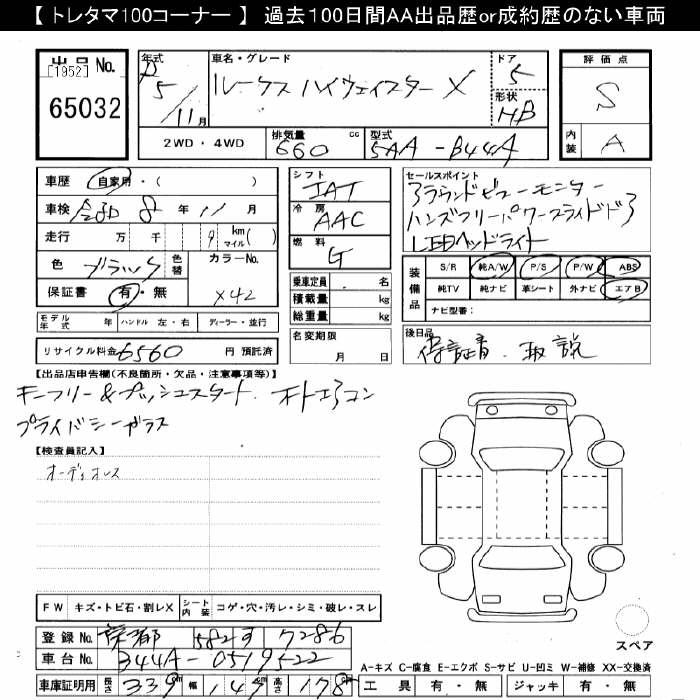 【 トレタマ100コーナー 】 過去100日間AA出品歴or成約歴のない車両
出品 No. [1952] 65032
年式 R5 / 11月
車名・グレード ルークス ハイウェイスター X
ドア 5
形状 HB
評価点 S
内装 A
2WD・4WD
排気量 660 cc
型式 5AA - B44A
車歴 自家用・( )
車検 令和 8 年 11 月
走行 万 千 9 km マイル( )
色 ブラック 色替 カラーNo. X42
保証書 有・無
シフト IAT
冷房 AAC
燃料 G
乗車定員 名
積載量 kg
総重量 kg
セールスポイント
アラウンドビューモニター
ハンズフリーパワースライドドア
LEDヘッドライト
装備品 S/R 純A/W P/S P/W ABS
純TV 純ナビ 革シート 外ナビ エアB
ナビ型番:
モデル年式 年 ハンドル 左・右 ディーラー・並行
リサイクル料金 6560 円 預託済
名変期限 月 日
後日品 保証書、取説
【出品店申告欄(不良箇所・欠品・注意事項等)】
キーフリー&プッシュスタート、オートエアコン
プライバシーガラス
【検査員記入】
オーディオレス
FW キズ・トビ石・割レX シート内装 コゲ・穴・汚レ・シミ・破レ・スレ
登録 No. 京都 582 7286
車台 No. B44A-0519522
車庫証明用 長さ 339 cm 幅 147 cm 高さ 178 cm
スペア
A-キズ C-腐食 E-エクボ S-サビ U-凹ミ W-補修 XX-交換済
工具 有・無 ジャッキ 有・無